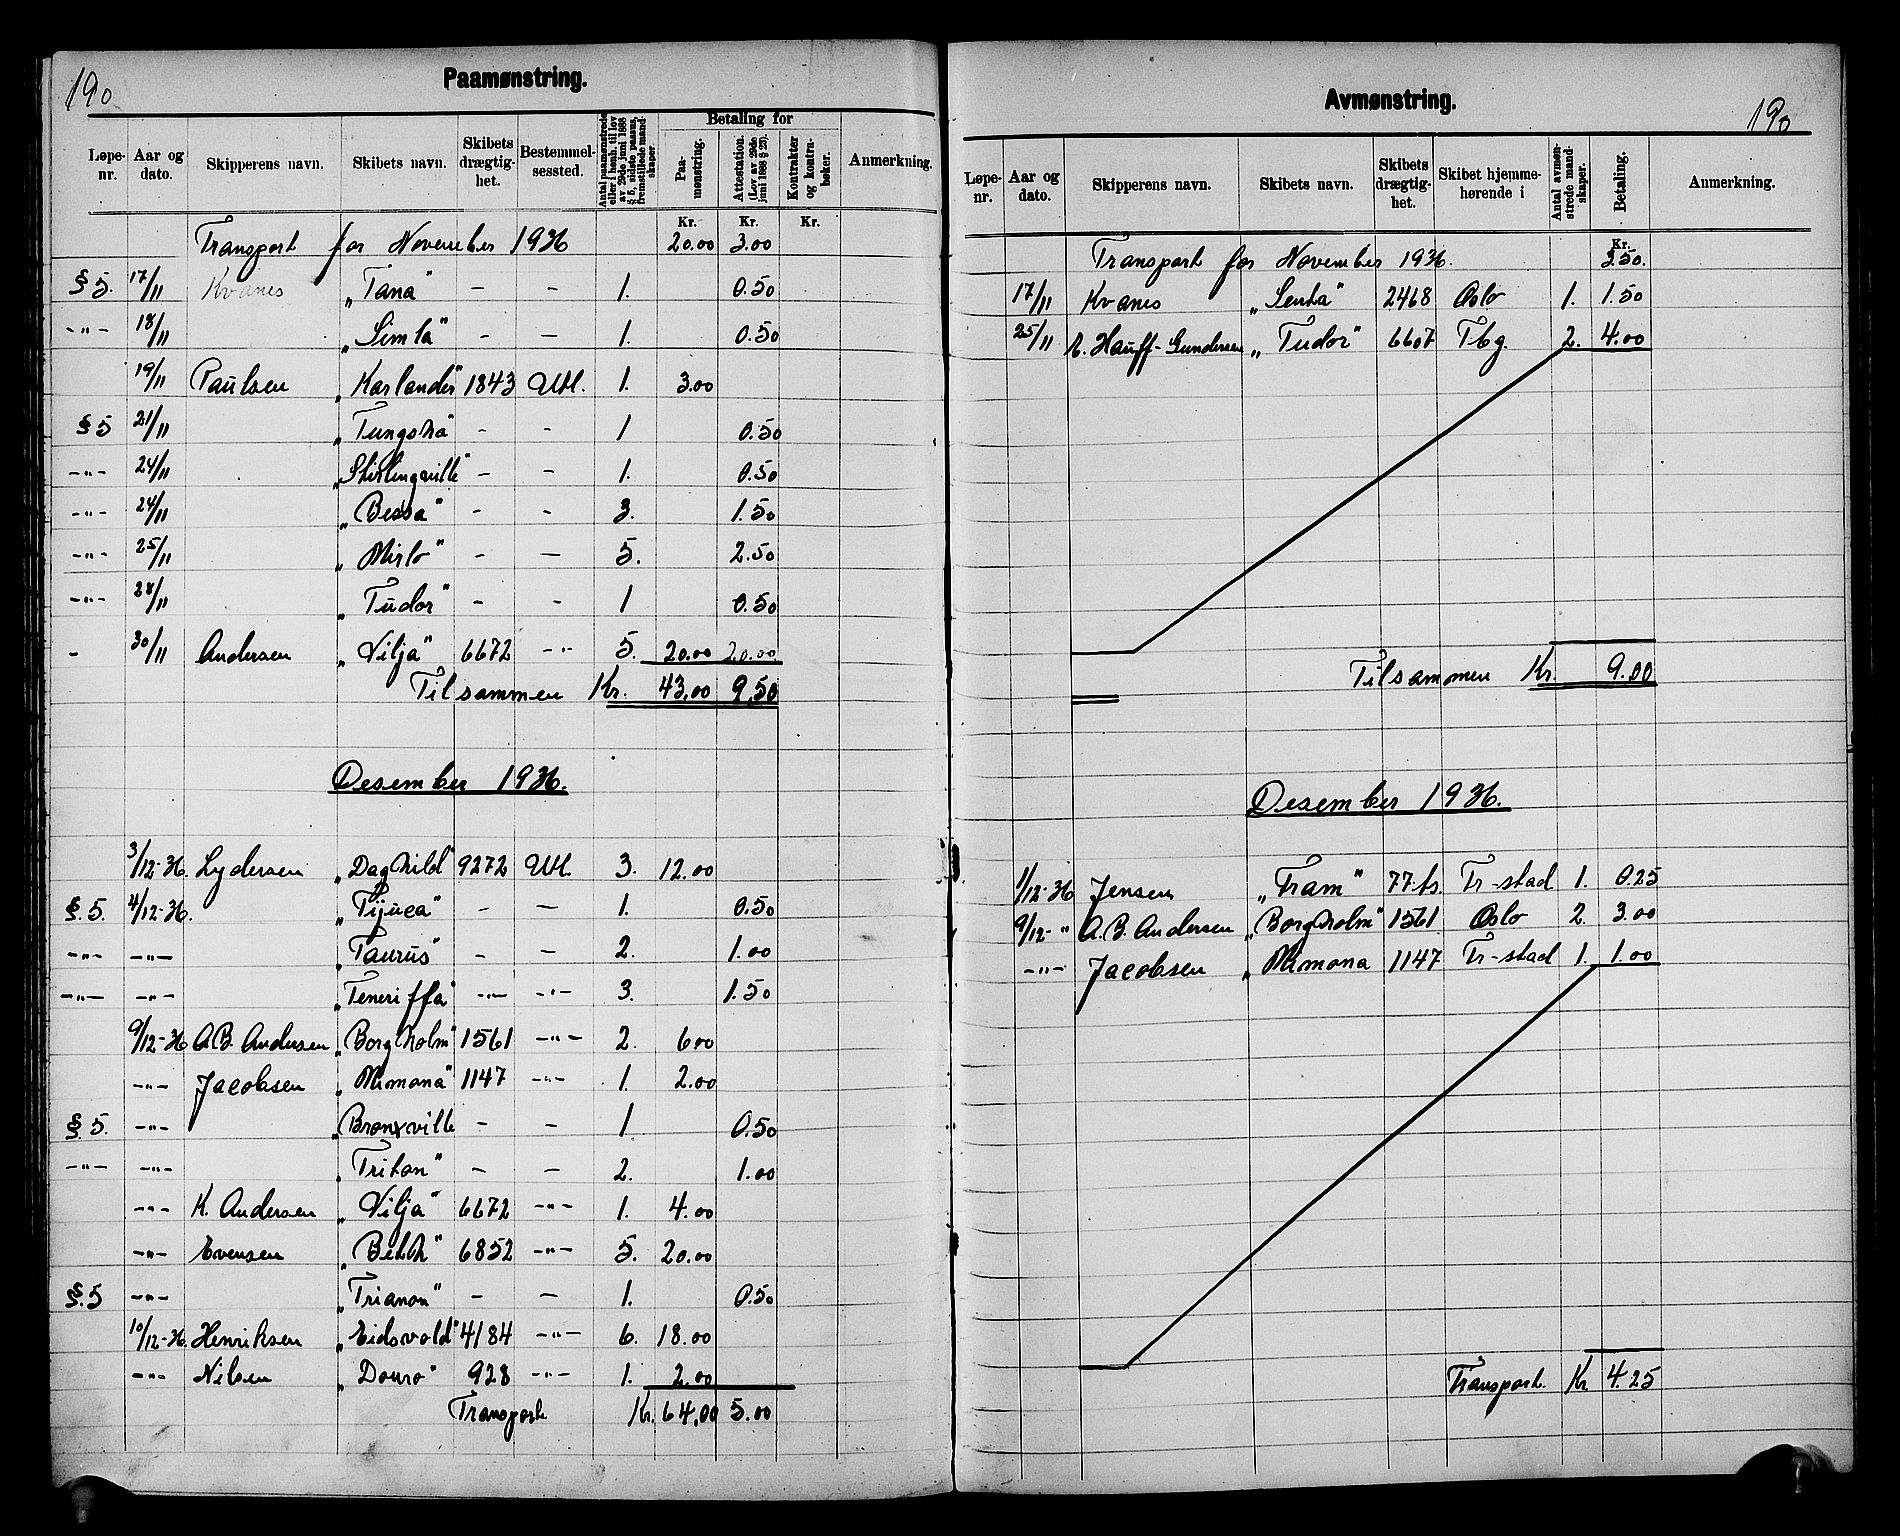 190
Paamønstring.
Løpe-nr. Aar og dato. Skipperens navn. Skibets navn. Skibets drægtig-het. Bestemmel-sessted. Antal paamønstrede eller i henh. til lov av 29de juni 1888 § 5, sidste passus, fremstillede mand-skaper Betaling for Paa-mønstring. Attestation. (Lov av 29de juni 1888 § 23). Kontrakter og kontra-bøker. Anmerkning.
Kr. Kr. Kr.
Transport for November 1936 20.00 3.00
§ 5. 17/11 Kvanes "Tana" - - 1. 0.50
-"- 18/11 "Simla" - - 1. 0.50
19/11 Paulsen "Karlander" 1843 Utl. 1. 3.00
§ 5 21/11 "Tungsha" - - 1 0.50
-"- 24/11 "Stirlingville" - - 1. 0.50
-"- 24/11 "Bessa" - - 3. 1.50
-"- 25/11 "Mirlo" - - 5. 2.50
-"- 28/11 "Tudor" - - 1 0.50
- 30/11 Andersen "Vilja" 6672 -"- 5. 20.00 20.00
Tilsammen Kr. 43,00 9,50
Desember 1936.
3/12-36. Lydersen "Daghild" 9272 Utl. 3. 12.00
§. 5. 4/12-36. "Tijuca" - - 1. 0.50
-"- -"- "Taurus" - - 2. 1.00
-"- -"- "Teneriffa" -"- -"- 3. 1.50
9/12-36 A.B. Andersen "Borgholm" 1561 -"- 2. 6.00
-"- Jacobsen "Mimona" 1147 -"- 1. 2.00
§. 5. -"- "Bronxville - - 1 0.50
-"- -"- "Triton" - - 2. 1.00
-"- K. Andersen "Vilja" 6672 -"- 1. 4.00
-"- Evensen "Belth" 6852 -"- 5. 20.00
§. 5 -"- "Trianon" - - 1. 0.50
10/12-36. Henriksen "Eidsvold" 4184 -"- 6. 18.00
-"- Nilsen "Douro" 928 -"- 1. 2.00
Transport Kr. 64,00 5.00
Avmønstring.
190
Løpe-nr. Aar og dato. Skipperens navn. Skibets navn. Skibets drægtig-het. Skibet hjemme-hørende i Antal avmøn-strede mand-skaper. Betaling. Anmerkning.
Kr.
Transport for November 1936. 3.50.
17/11 Kvanes "Senta" 2468 Oslo 1. 1.50
25/11 E. Hauff-Gundersen "Tudor" 6607 Tbg. 2. 4.00
Tilsammen Kr. 9.00
Desember 1936.
1/12-36 Jensen "Fram" 77.ts. Fr-stad 1. 0.25
9/12-" A.B. Andersen "Borgholm" 1561 Oslo 2. 3.00
-"- Jacobsen "Mimona 1147 Fr-stad 1. 1.00
Transport. Kr 4.25